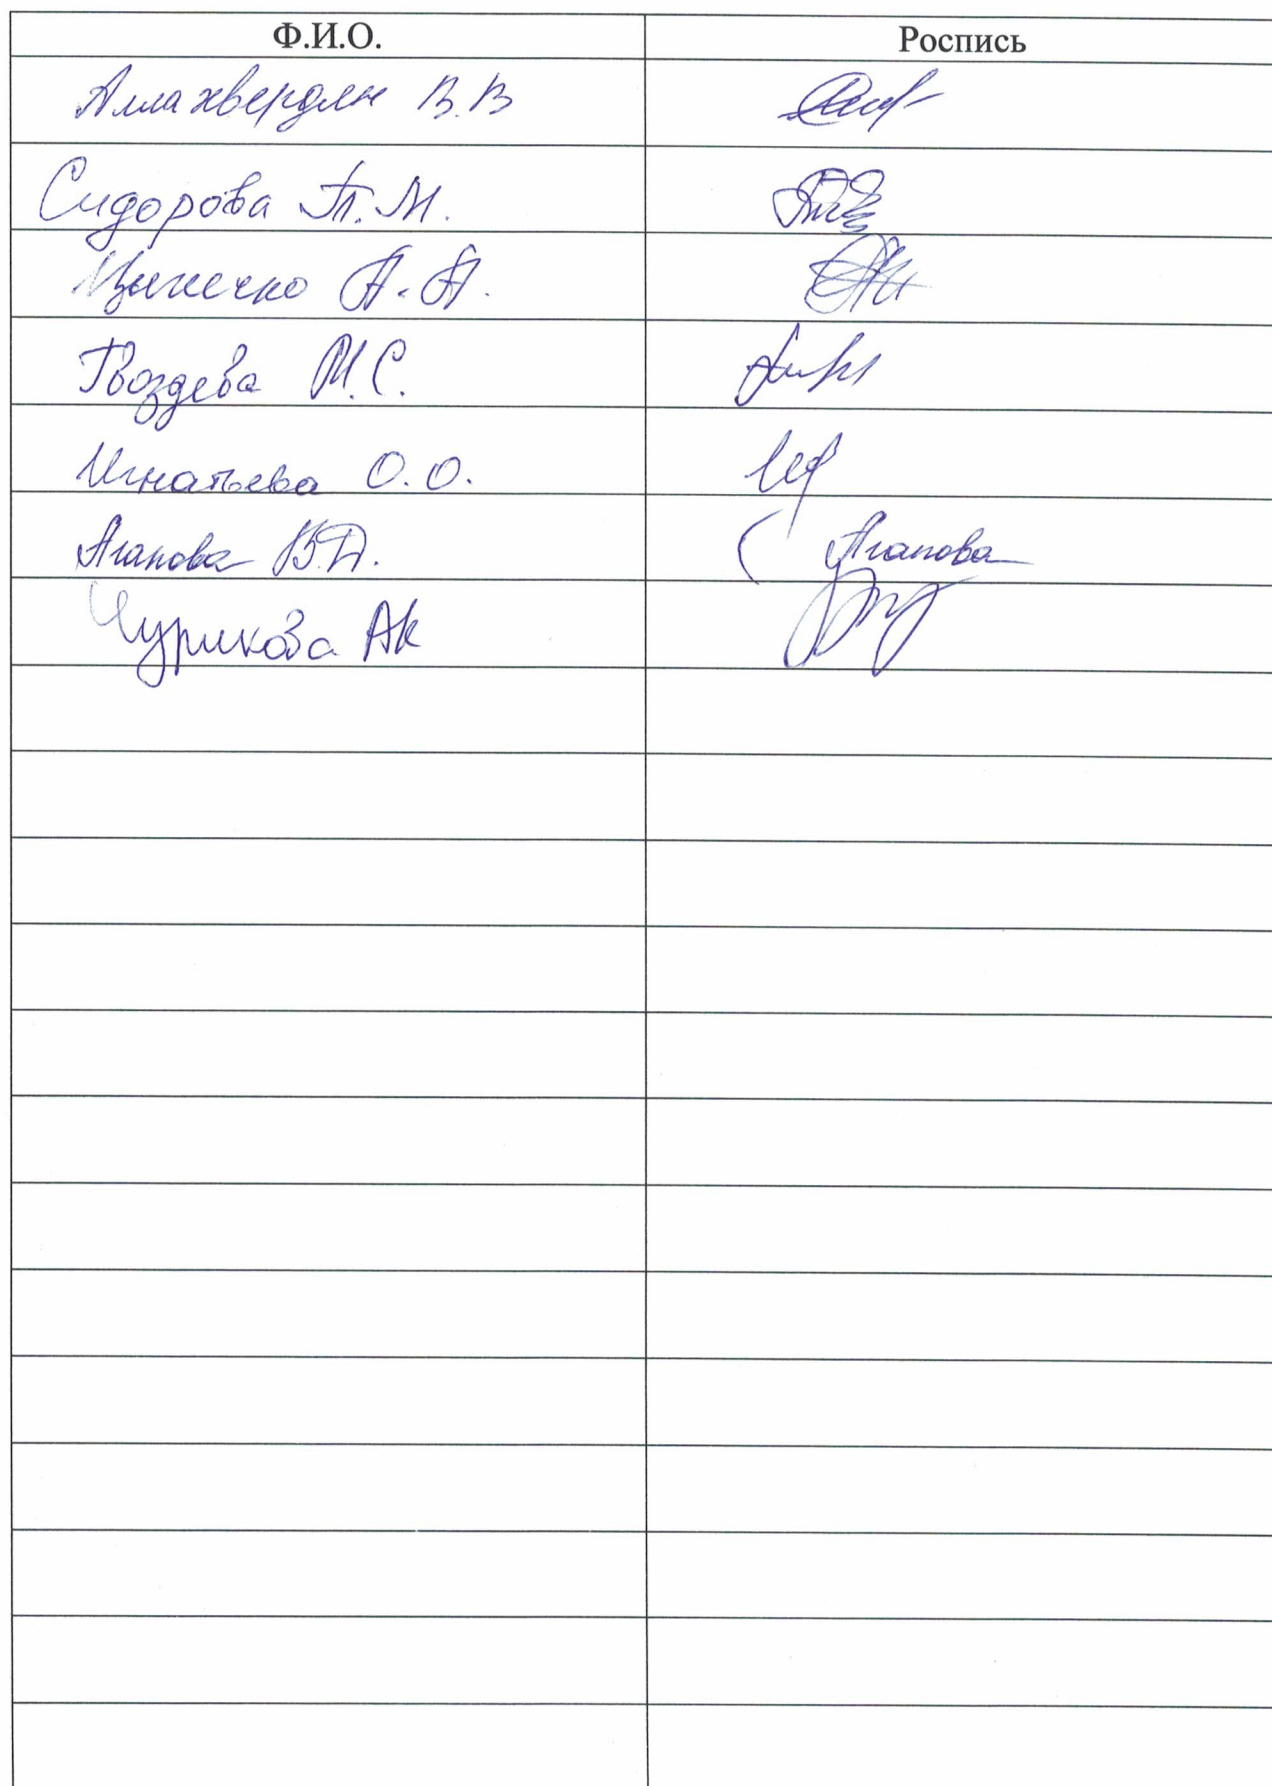 Ф.И.О. Роспись
Аллахвердян В.В
Сидорова Т.М.
А.А.
Гвоздева М.С.
Игнатьева О.О.
Агапова В.Д. Агапова
Чурикова АК